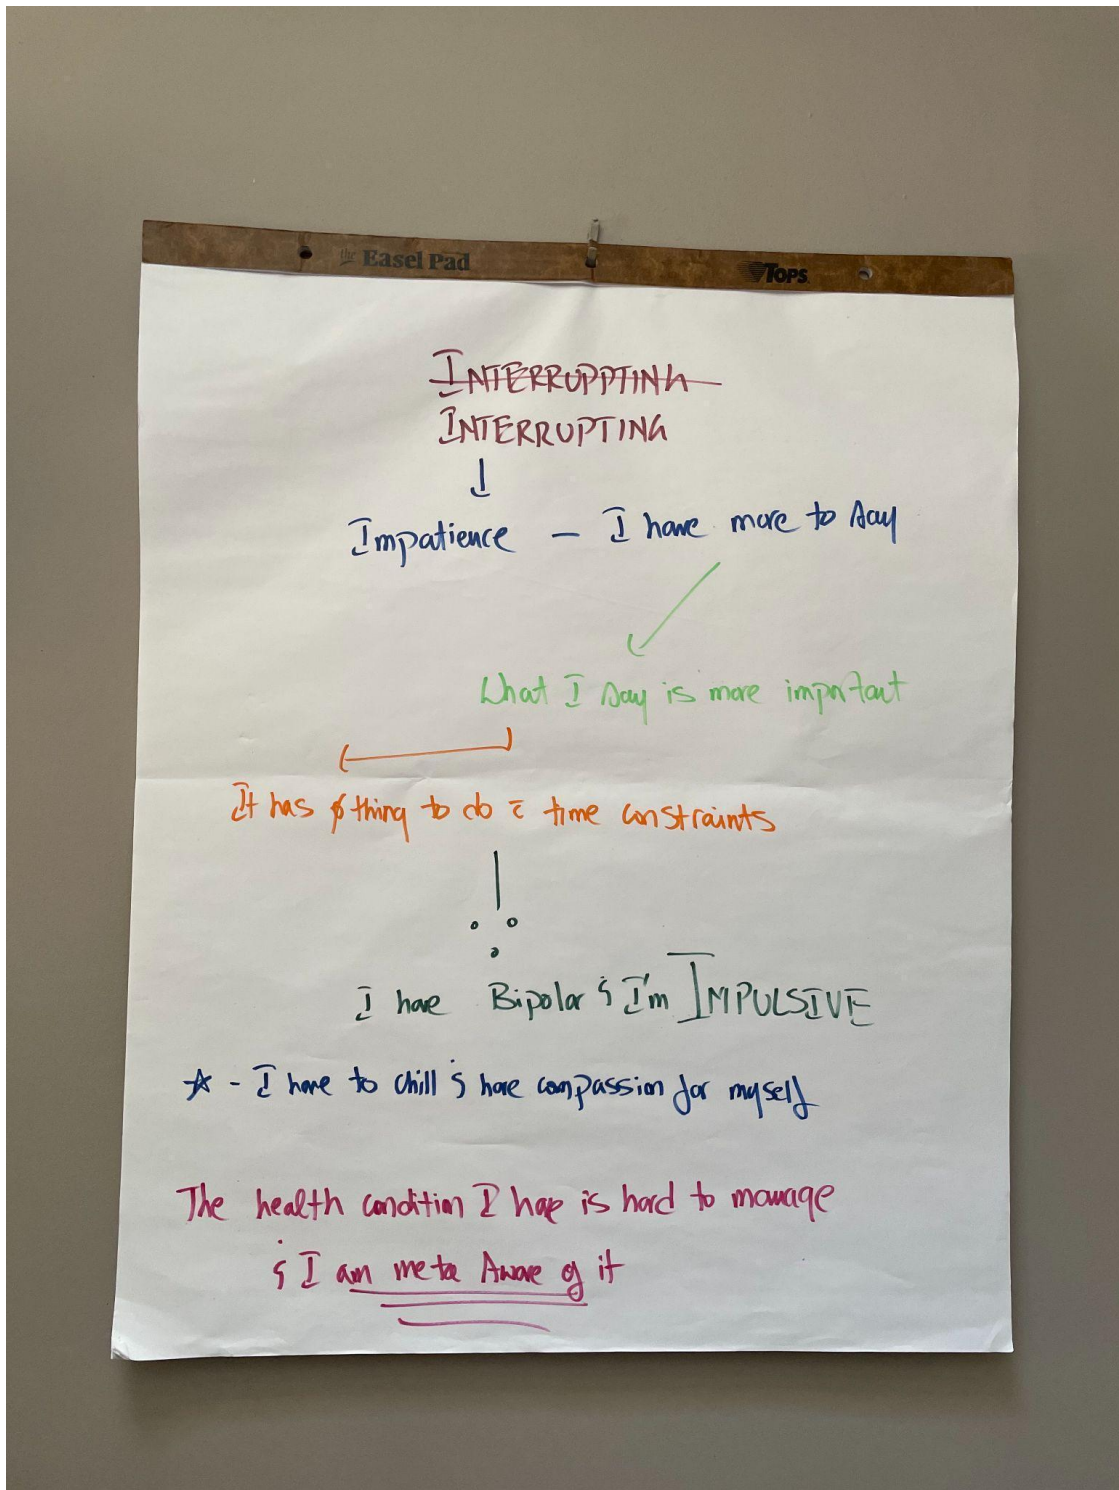 the Easel Pad TOPS
INTERRUPPTING
INTERRUPTING
Impatience - I have more to say
What I say is more important
It has φthing to do c̄ time constraints
I have Bipolar & I'm IMPULSIVE
☆ - I have to chill & have compassion for myself
The health condition I have is hard to manage
& I am meta Aware of it